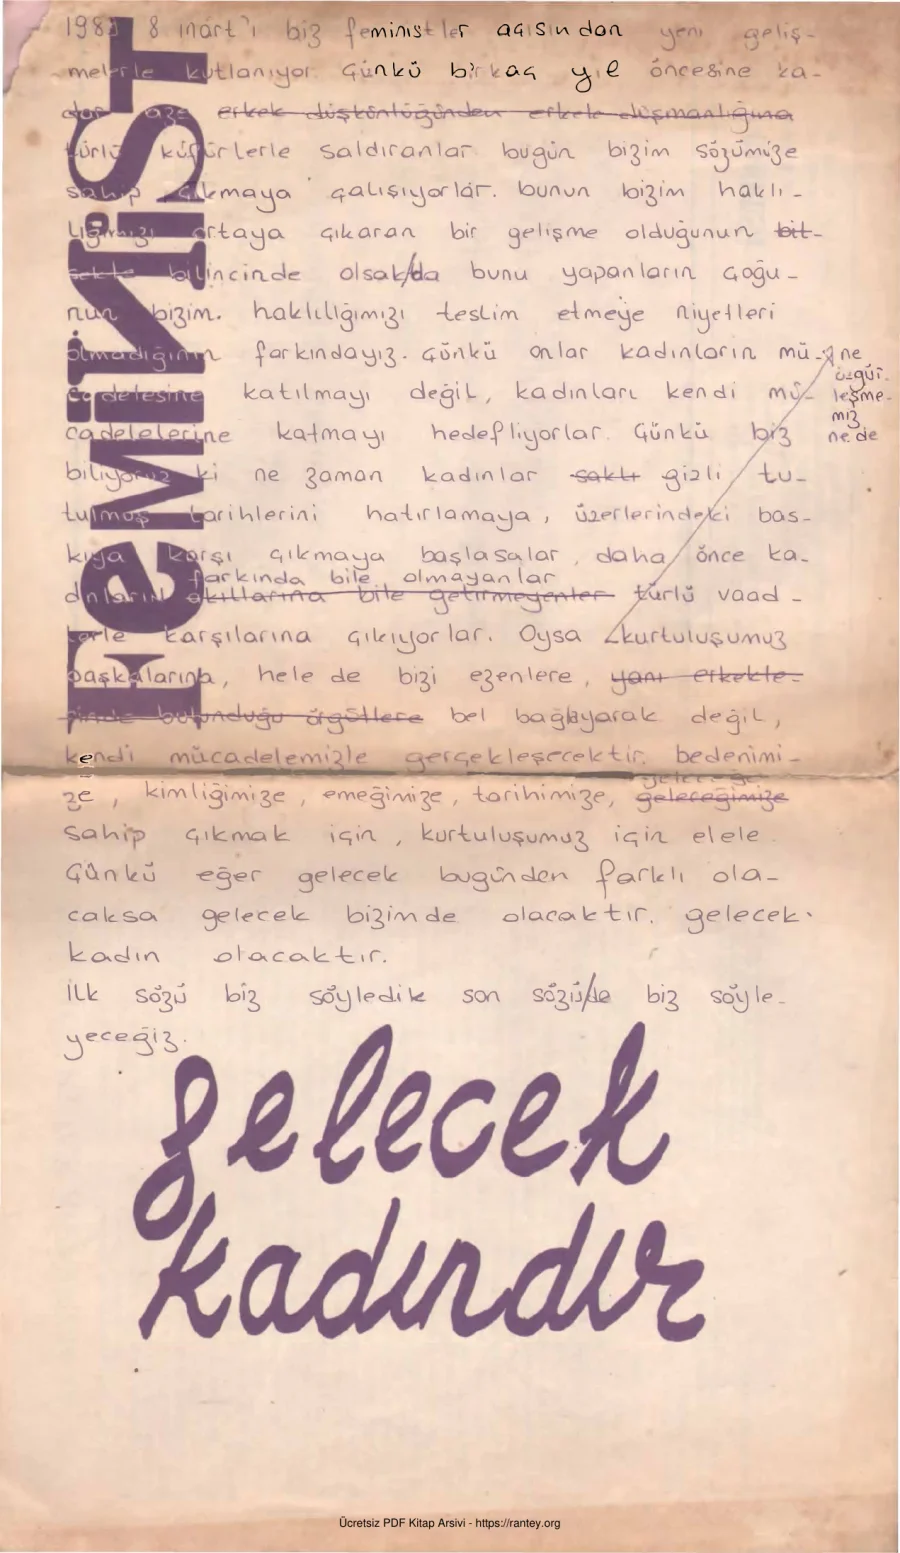 8 mart'ı biz feministler açısından yeni geliş-
melerle kutlanıyor. Çünkü birkaç yıl öncesine ka-
dar bize erkek düşkünlüğünden erkek düşmanlığına
türlü küfürlerle saldıranlar bugün bizim sözümüze
sahip çıkmaya çalışıyorlar. bunun bizim haklı-
lığımızı ortaya çıkaran bir gelişme olduğunun bit-
sekte bilincinde olsak/da bunu yapanların çoğu-
nun bizim haklılığımızı teslim etmeye niyetleri
olmadığının farkındayız. Çünkü onlar kadınların mü-
cadelesine katılmayı değil, kadınları kendi mü-
cadelelerine katmayı hedefliyorlar. Çünkü biz
ne
özgür-
leşme-
miz
ne de
biliyoruz ki ne zaman kadınlar saklı gizli tu-
tulmuş tarihlerini hatırlamaya, üzerlerindeki bas-
kıya karşı çıkmaya başlasalar, daha önce ka-
farkında bile olmayanlar
dınların akıllarına bile getirmeyenler türlü vaad-
lerle karşılarına çıkıyorlar. Oysa kurtuluşumuz
başkalarına, hele de bizi ezenlere, yani erkekle-
rinde bulunduğu örgütlere bel bağlayarak değil,
kendi mücadelemizle gerçekleşecektir. bedenimi-
ze, kimliğimize, emeğimize, tarihimize, geleceğimize
sahip çıkmak için, kurtuluşumuz için elele.
Çünkü eğer gelecek bugünden farklı ola-
caksa gelecek bizimde olacaktır. gelecek
kadın olacaktır.
ilk sözü biz söyledik son sözü/de biz söyle-
yeceğiz.
FeMiNiST
gelecek
kadındır
Ücretsiz PDF Kitap Arsivi - https://rantey.org